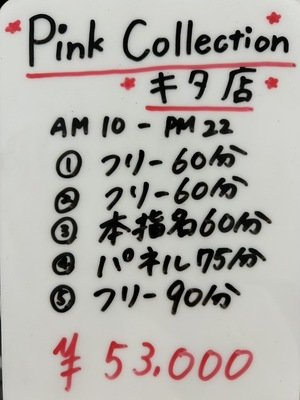 Pink Collection
キタ店
AM 10 - PM 22
① フリー60分
② フリー60分
③ 本指名60分
④ パネル75分
⑤ フリー90分
¥ 53,000